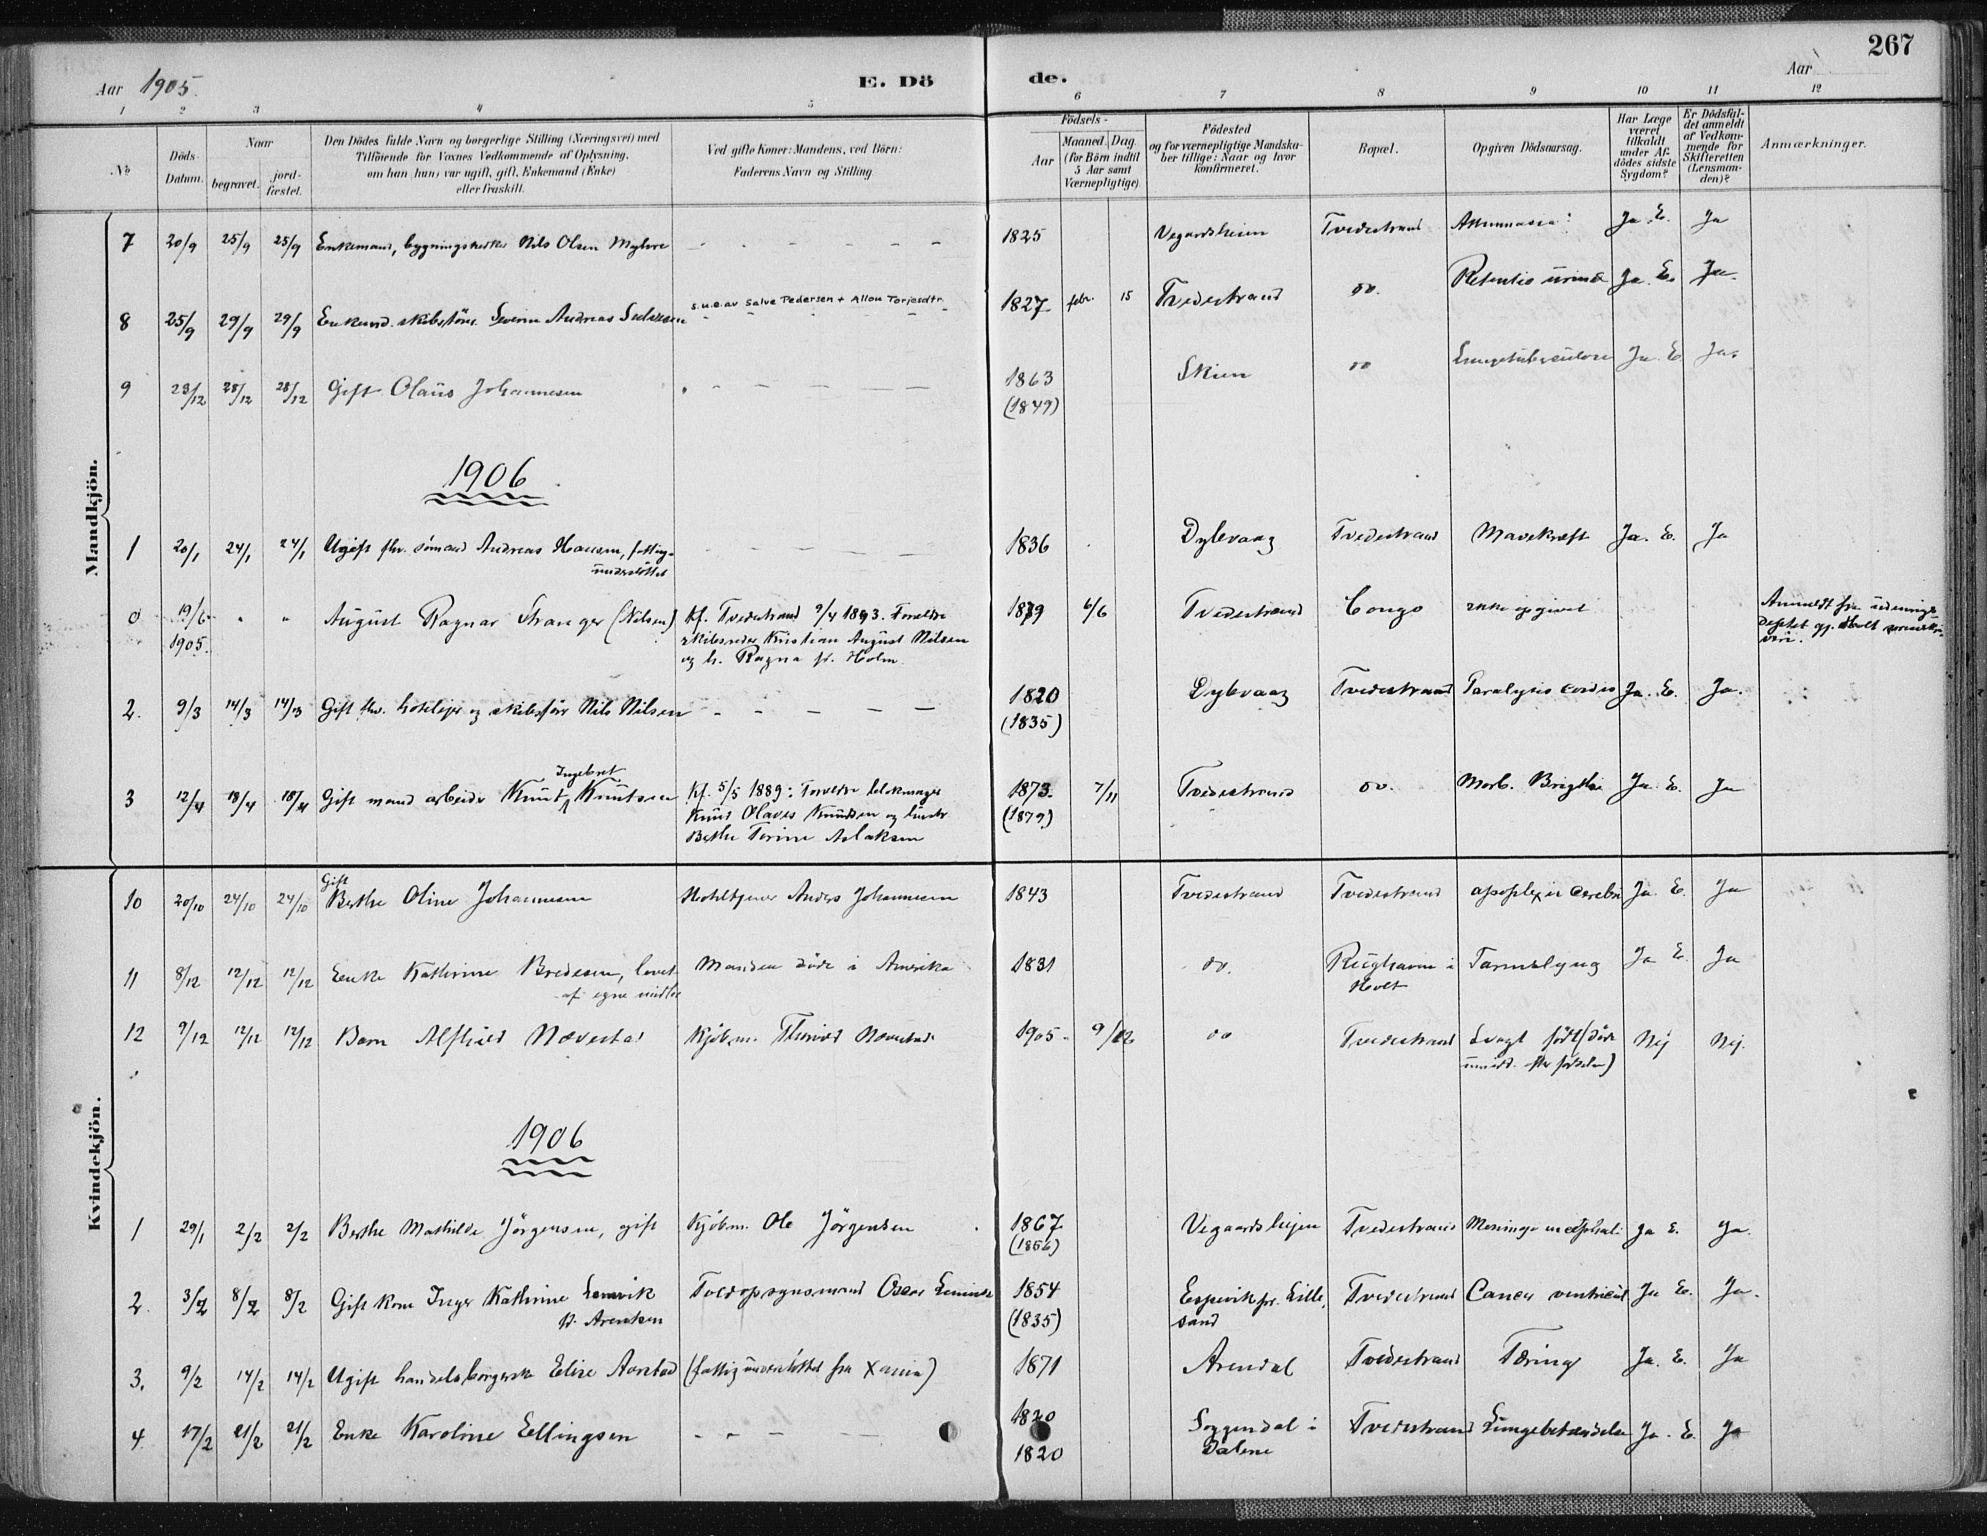 267
Aar 1905. E. Dö de. Aar
1 2 3 4 5 6 7 8 9 10 11 12
No
Döds-Datum.
Naar
begravet.
jord-fæstet.
Den Dödes fulde Navn og borgerlige Stilling (Næringsvei) med
Tilföiende for Voxnes Vedkommende af Oplysning,
om han (hun) var ugift, gift, Enkemand (Enke)
eller fraskilt.
Ved gifte Koner: Mandens, ved Börn:
Faderens Navn og Stilling
Födsels-
Aar
Maaned. Dag.
(for Börn indtil
5 Aar samt
Værnepligtige)
Födested
og for værnepligtige Mandska-
ber tillige: Naar og hvor
konfirmeret.
Bopæl.
Opgiven Dödsaarsag.
Har Læge
været
tilkaldt
under Af-
dödes sidste
Sygdom?
Er Dödsfal-
det anmeldt
af Vedkom-
mende for
Skifteretten
(Lensman-
den)?
Anmærkninger.
Mandkjön.
7 20/9 25/9 25/9 Enkemand, Nils Olsen Myhre - - - - - 1825 Vegardsheien Tvedestrand Ja. E. Ja
8 25/9 29/9 29/9 Severin Andreas s.u.e. av Salve Pedersen + Allou Torjesdtr. 1827 febr. 15 Tvedestrand do. Retentio urinæ Ja. E. Ja.
9 23/12 28/12 28/12 Gift Olaus Johannesen - - - - - 1863 Skien do Ja. E Ja.
(1849)
1906
1 20/1 24/1 24/1 Ugift fhv. sömand Andreas Hansen, fattig-
understöttet - - - - - 1836 Dybvaag Tvedestrand Mavekræft Ja. E. Ja
0 19/6 " " August Ragnar Stranger (Nilsen) Kf. Tvedestrand 9/4 1893. Foreldre 1879 6/6 Tvedestrand Congo ikke opgivet Anmeldt fra
1905. skibsreder Kristian August Nilsen
og h. Ragna f. Holm.
2. 9/3 14/3 14/3 Gift fhv. hoteleier og skibsförer Nils Nilsen - - - - - 1820 Dybvaag Tvedestrand Paralysis cordis Ja. E. Ja.
(1835)
3 12/4 18/4 18/4 Gift mand arbeider Knut Ingebret Knutsen Kf. 5/5 1889: Foreldre 1873. 7/11 Tvedestrand do. Morb. Brightii Ja E. Ja
Knut Olaves Knudsen og hustr (1879)
Berthe Terine Aslaksen
Kvindekjön.
10 20/10 24/10 24/10 Gift Berthe Oline Johannesen Anders Johannesen 1843 Tvedestrand Tvedestrand apoplexia cerebri Ja E. Ja
11 8/12 12/12 12/12 Enke Kathrine Bredesen, levet
af egne midler Manden döde i Amerika 1831 do. i
Holt Tarmslyng Ja E. Ja
12 9/12 12/12 12/12 Barn Alfhild Nævestad Kjöbm. Nævestad 1905. 9/12 do Tvedestrand Svagt födt (döde
umidd. efter födselen) Nej Nej.
1906
1 29/1 2/2 2/2 Berthe Mathilde Jörgensen, gift Kjöbm. Ole Jörgensen 1867 Vegaardsheien Tvedestrand Ja E. Ja.
(1856)
2. 3/2 8/2 8/2 Gift kone Inger Kathrine Lemvik
f. Arentsen Toldopsynsmand Oscar 1854 Espevik pr. Lille-
sand Tvedestrand Cancer ventriculi Ja E. Ja.
(1835)
3. 9/2 14/2 14/2 Ugift handelsborgerske Elise Aarstad (fattigunderstöttet fra Xania) 1871 Arendal Tvedestrand Tæring Ja. E. Ja
4. 17/2 21/2 21/2 Enke Karoline Ellingsen - - - - 1820 Soggendal i
Dalene Tvedestrand Lungebetændelse Ja. E. Ja
1820